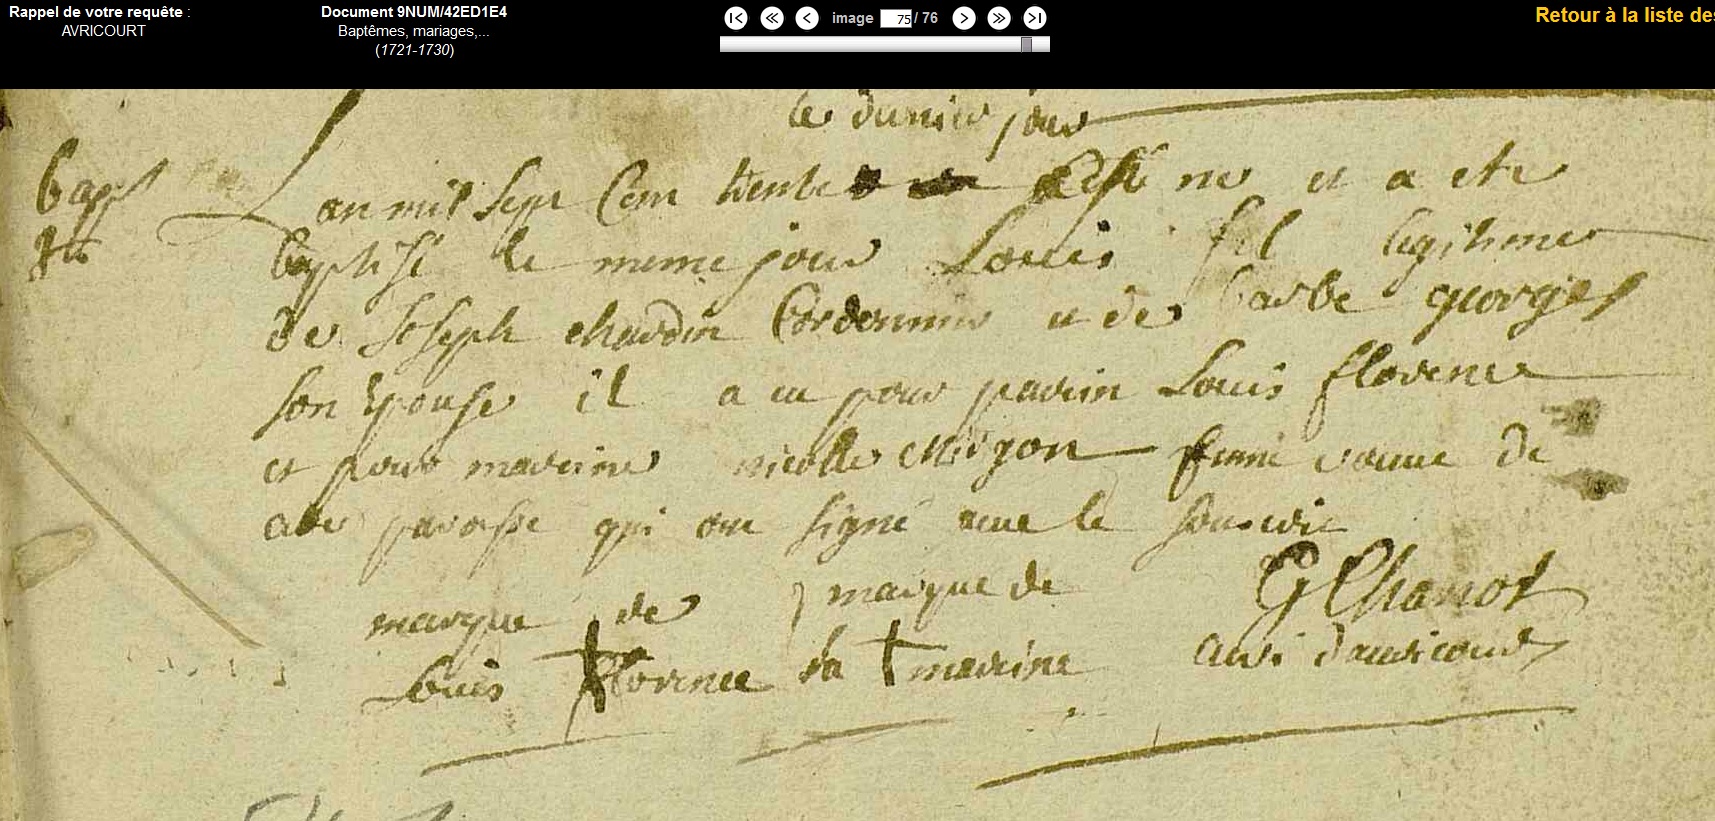 Rappel de votre requête :
AVRICOURT
Document 9NUM/42ED1E4
Baptêmes, mariages,...
(1721-1730)
image 75 / 76
Retour à la liste des
le dernier jour
Bapt
Lan mil sept Cent trente est ne et a ete
baptisé le meme jour Louis fil legitime
de Joseph chardin Cordonnier et de barbe georges
son Epouse il a eu pour parein Louis florence
et pour mareine nicolle femme de
paroisse qui ont signé avec le
marque de marque de G Chanot
Louis florence la mareine curé davricourt